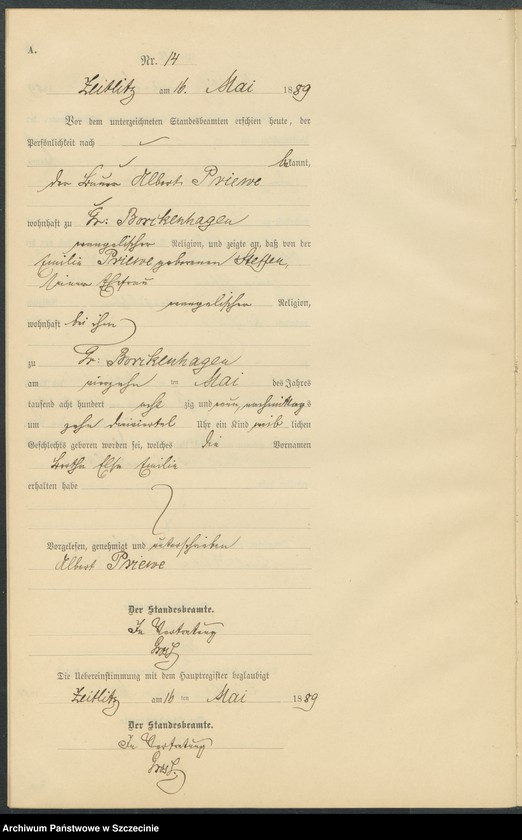 A.
Nr. 14
Zeitlitz am 16. Mai 1889
Vor dem unterzeichneten Standesbeamten erschien heute, der
Persönlichkeit nach
bekannt,
der Bauer Albert Priewe
wohnhaft zu Gr: Borckenhagen
evangelischer Religion, und zeigte an, daß von der
Emilie Priewe geborenen Steffen,
seiner Ehefrau
evangelischer Religion,
wohnhaft bei ihm
zu Gr: Borckenhagen
am vierzehn ten Mai des Jahres
tausend acht hundert acht zig und neun, nachmittags
um zehn dreiviertel Uhr ein Kind weib lichen
Geschlechts geboren worden sei, welches die Vornamen
Bertha Elsa Emilie
erhalten habe
Vorgelesen, genehmigt und unterschrieben
Albert Priewe
Der Standesbeamte.
In Vertretung
Die Uebereinstimmung mit dem Hauptregister beglaubigt
Zeitlitz am 16 ten Mai 1889
Der Standesbeamte.
In Vertretung
Archiwum Państwowe w Szczecinie